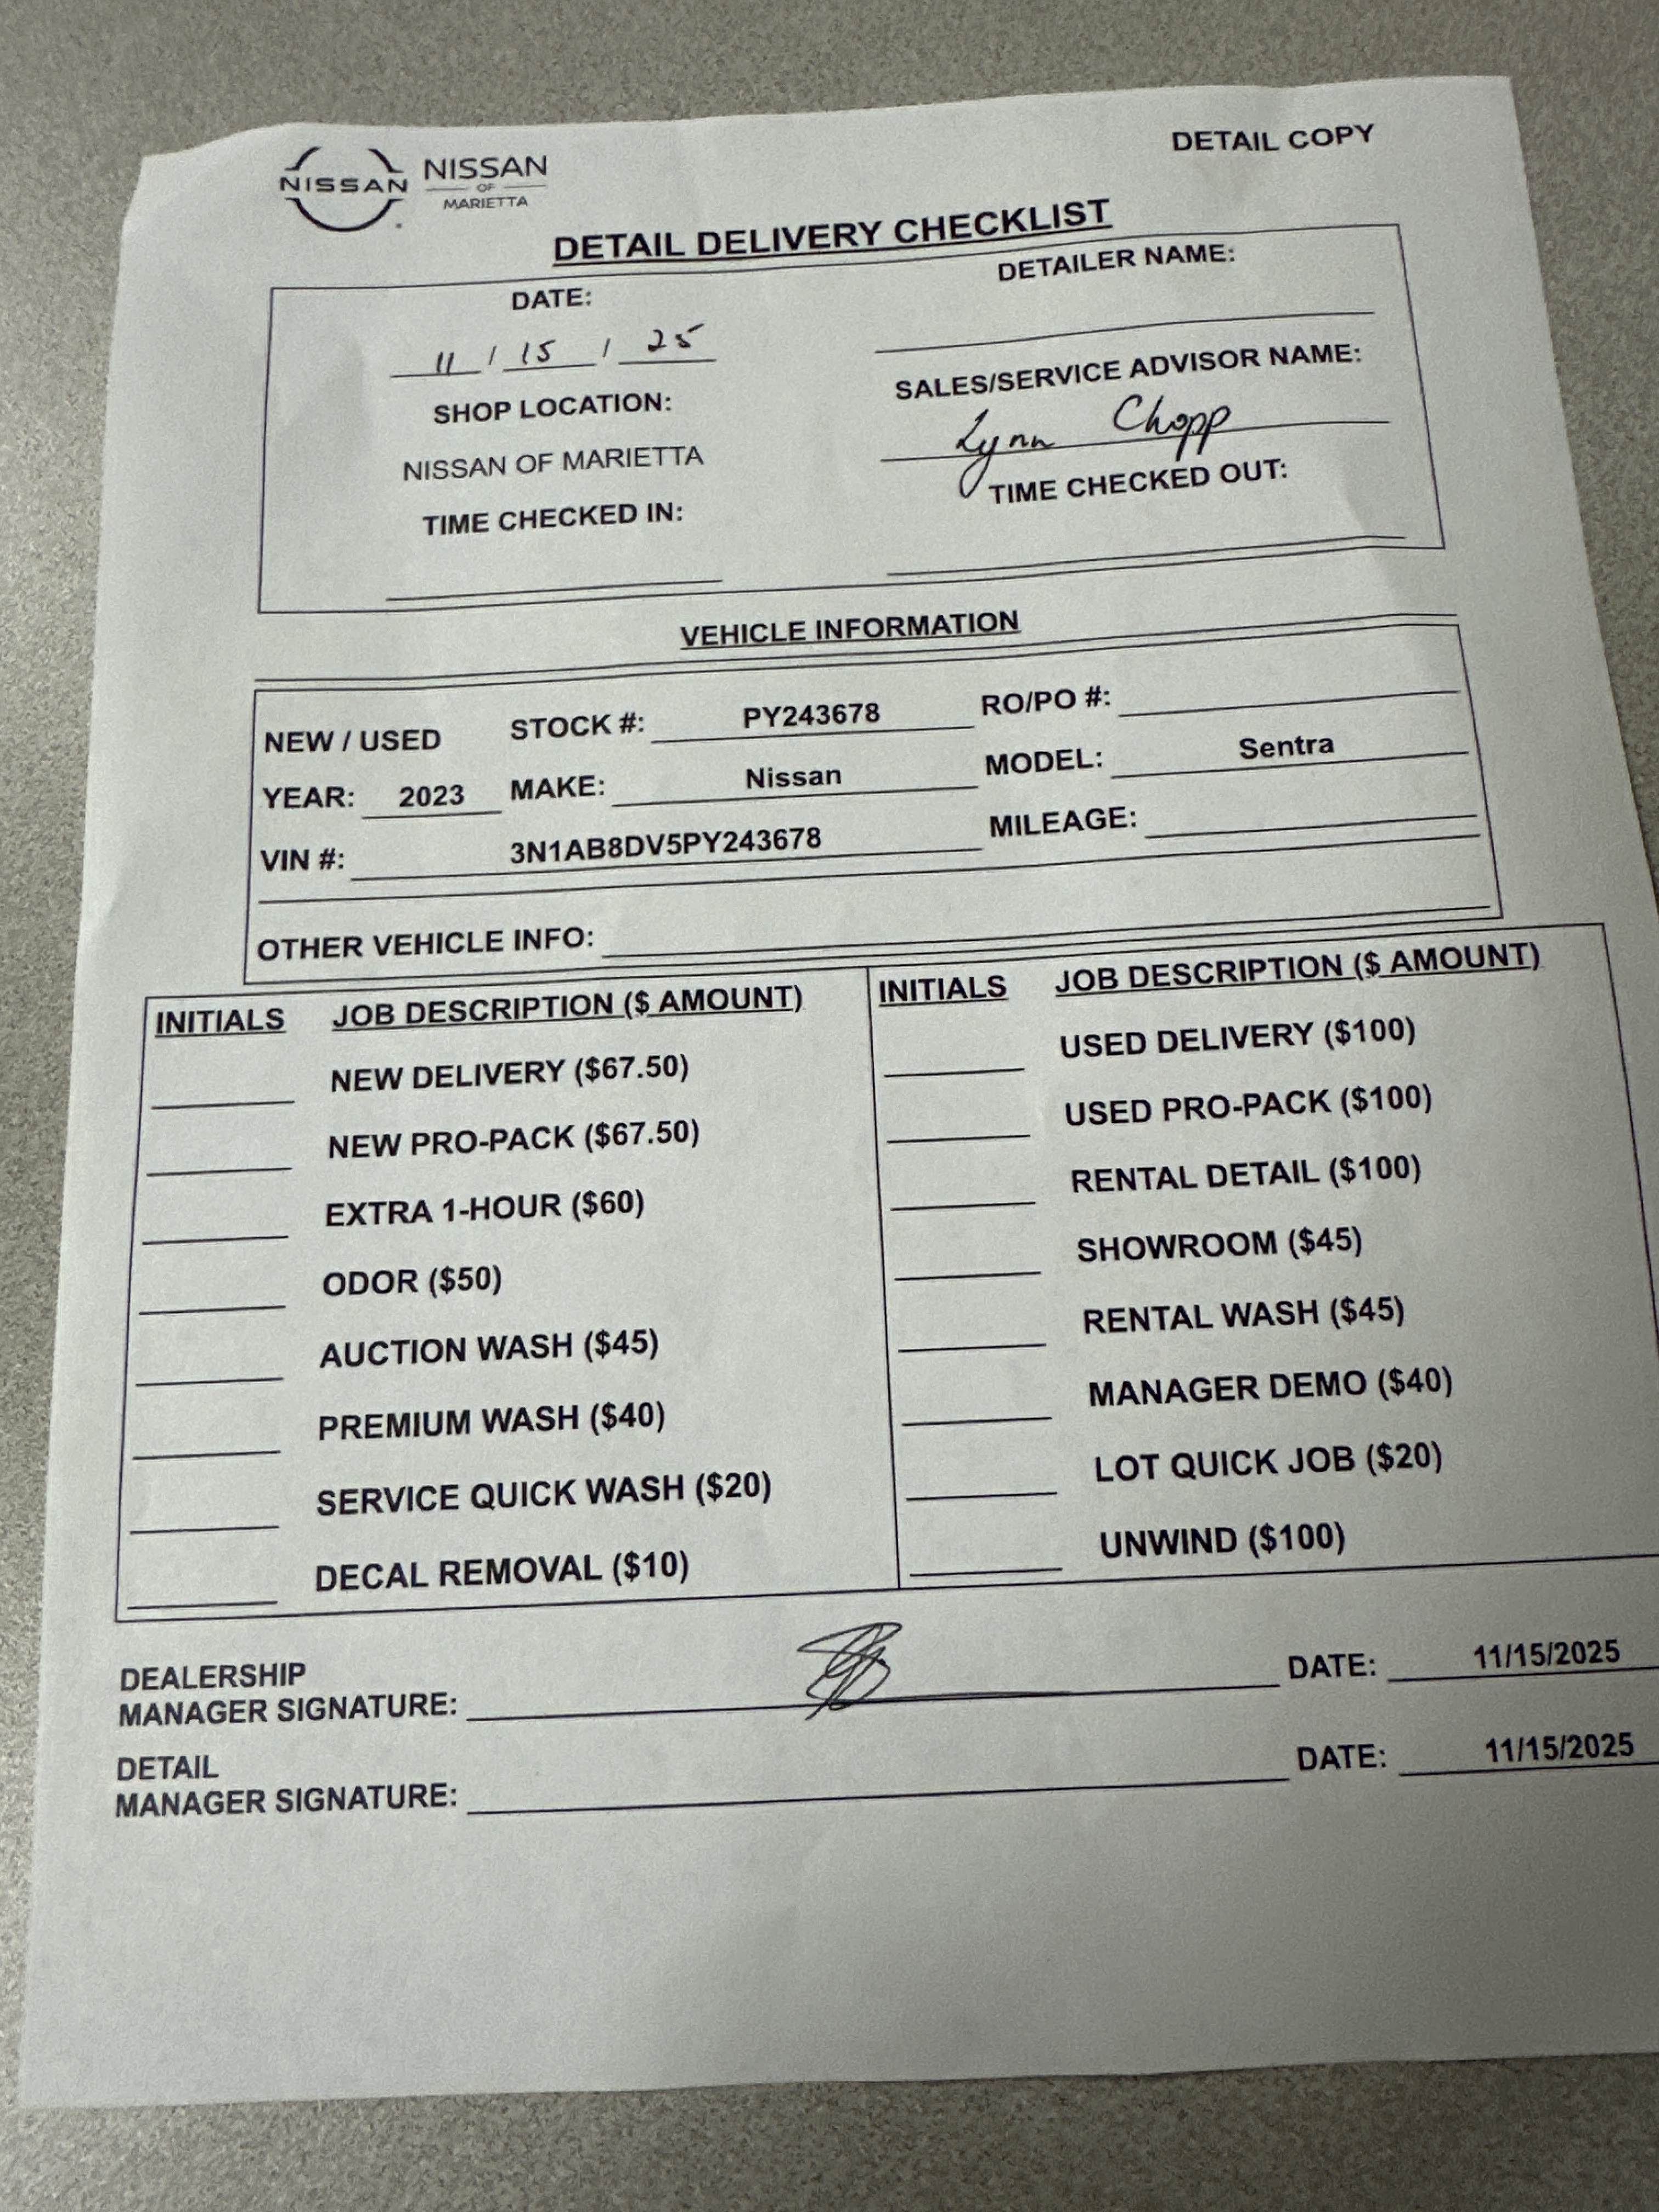 NISSAN NISSAN OF MARIETTA
DETAIL COPY
DETAIL DELIVERY CHECKLIST
DATE:
11 / 15 / 25
SHOP LOCATION:
NISSAN OF MARIETTA
TIME CHECKED IN:
DETAILER NAME:
SALES/SERVICE ADVISOR NAME:
Lynn Chopp
TIME CHECKED OUT:
VEHICLE INFORMATION
NEW / USED STOCK #: PY243678 RO/PO #:
YEAR: 2023 MAKE: Nissan MODEL: Sentra
VIN #: 3N1AB8DV5PY243678 MILEAGE:
OTHER VEHICLE INFO:
INITIALS JOB DESCRIPTION ($ AMOUNT)
NEW DELIVERY ($67.50)
NEW PRO-PACK ($67.50)
EXTRA 1-HOUR ($60)
ODOR ($50)
AUCTION WASH ($45)
PREMIUM WASH ($40)
SERVICE QUICK WASH ($20)
DECAL REMOVAL ($10)
INITIALS JOB DESCRIPTION ($ AMOUNT)
USED DELIVERY ($100)
USED PRO-PACK ($100)
RENTAL DETAIL ($100)
SHOWROOM ($45)
RENTAL WASH ($45)
MANAGER DEMO ($40)
LOT QUICK JOB ($20)
UNWIND ($100)
DEALERSHIP
MANAGER SIGNATURE: DATE: 11/15/2025
DETAIL
MANAGER SIGNATURE: DATE: 11/15/2025